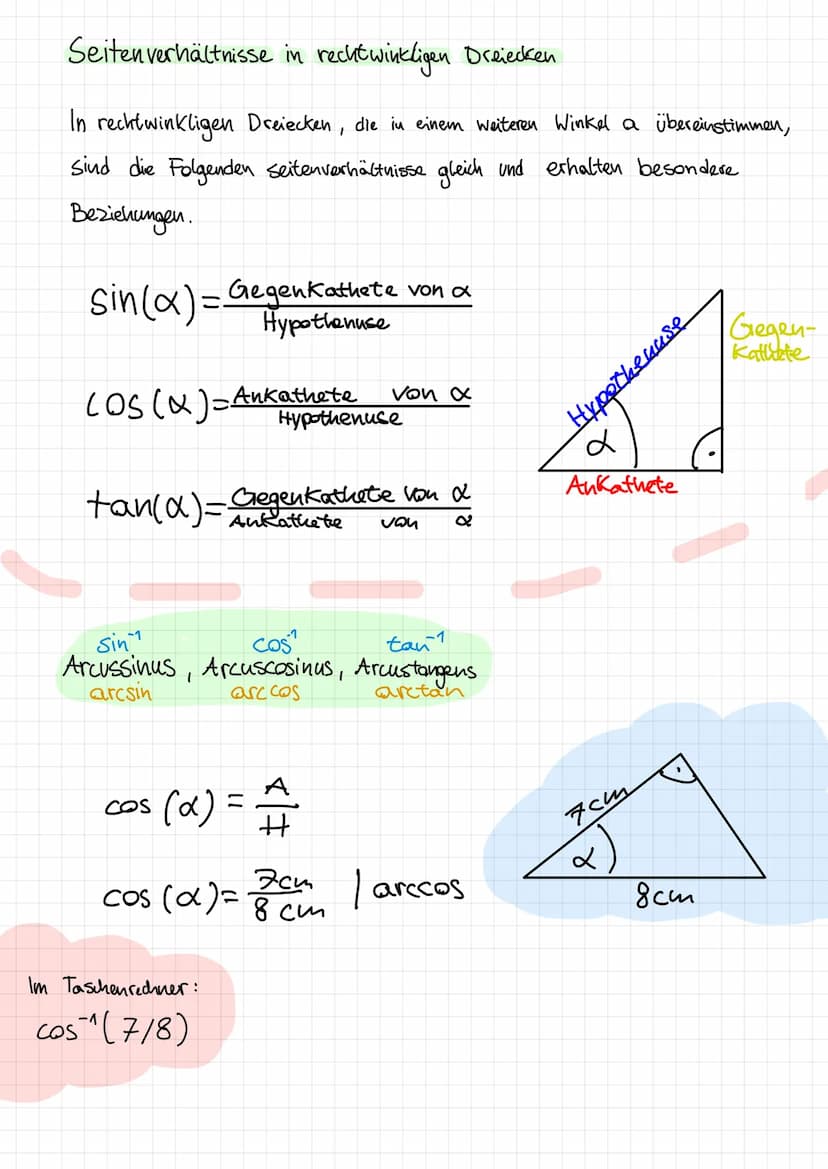 Seitenverhältnisse in rechtwinkligen Dreiecken
In rechtwinkligen Dreiecken, die in einem weiteren Winkel a übereinstimmen,
sind die Folgenden seitenverhältnisse gleich und erhalten besondere
Beziehungen.
sin(α)=Gegenkathete von α/Hypothenuse
cos(α)=Ankathete von α/Hypothenuse
tan(α)=Gegenkathete von α/Ankathete von α
Hypothenuse
Gegen-
kathete
α
Ankathete
sin⁻¹ cos⁻¹ tan⁻¹
Arcussinus, Arcuscosinus, Arcustangens
arcsin arccos arctan
cos(α) = A/H
cos(α) = 7cm/8cm | arccos
7cm
α
8cm
Im Taschenrechner:
cos⁻¹(7/8)